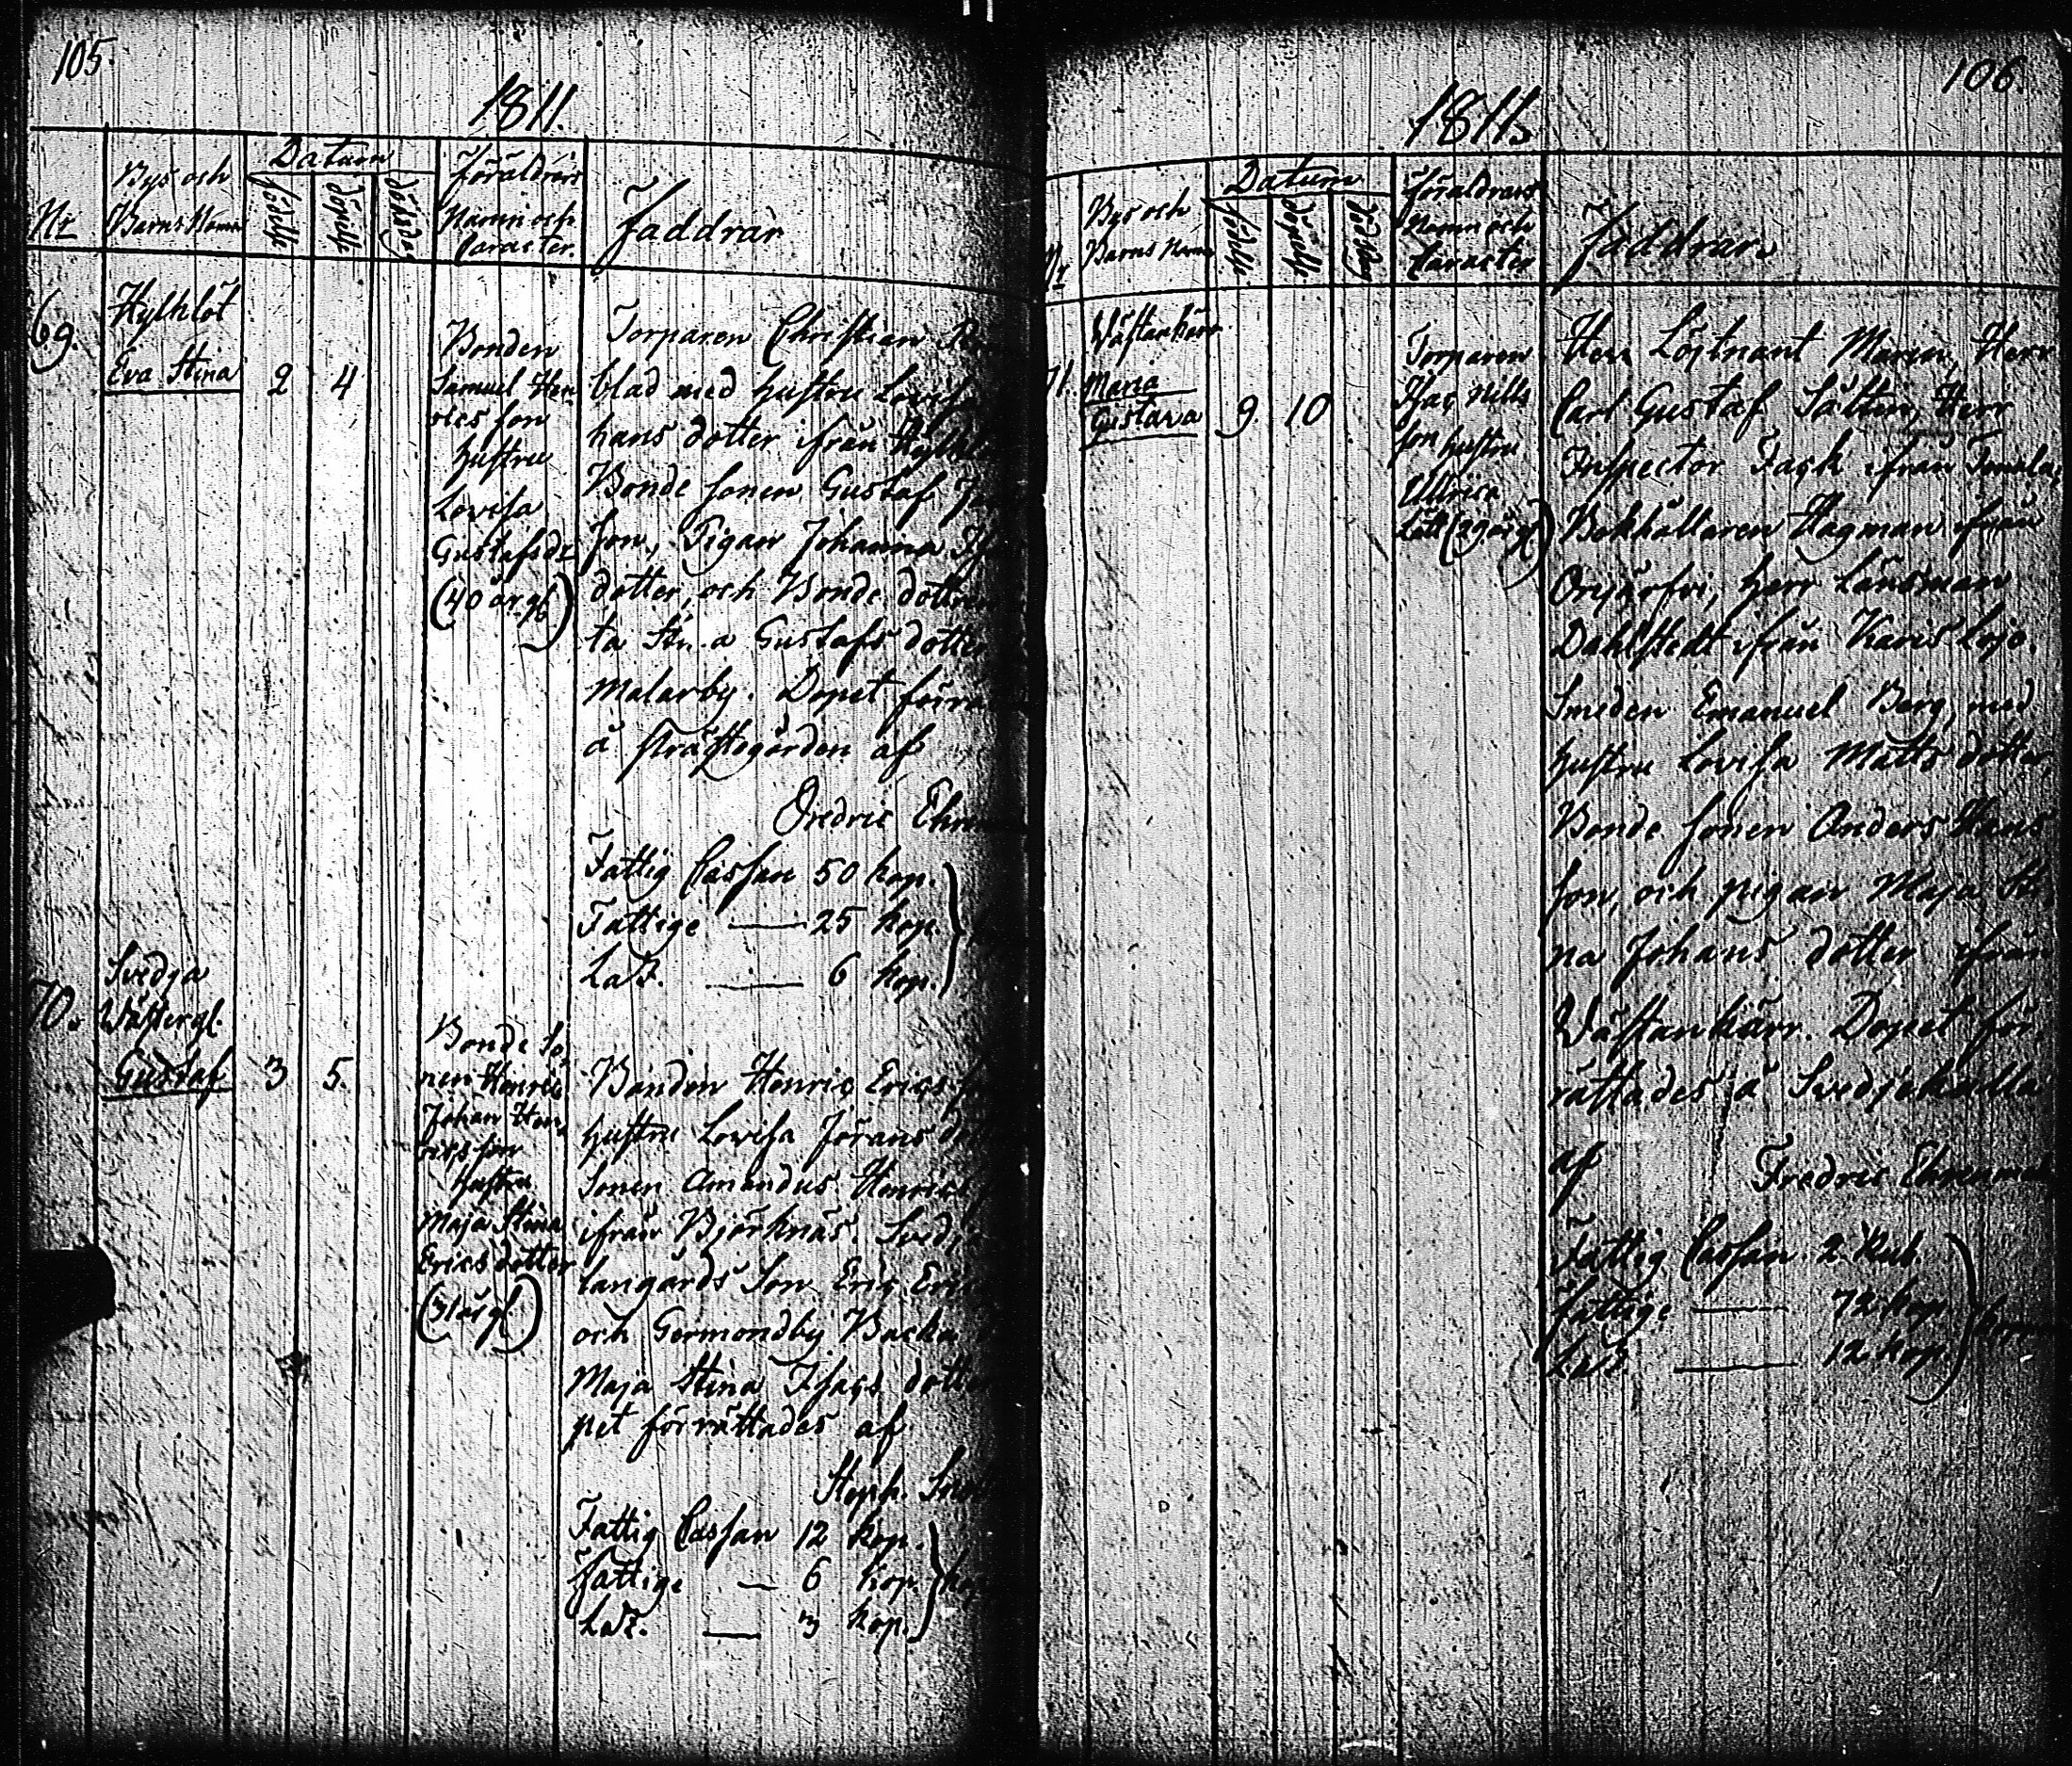 105.
1811.
Nr
Bys och
Barns Namn
Datum
födelse
döpelse
dödsdag
Föräldrars
Namn och
Caracter.
Faddrar
69.
Hylklöt
Eva Stina
2 4
Bonden
Samuel Hen
rics son
hustru
Lovisa
Gustafsdr
(40 år gl)
Torparen Christian
blad med hustru Lovisa
hans dotter ifrån
Bonde sonen Gustaf
son, Pigan Johanna
dotter, och Bonde dottren
ta Stina Gustafs dotter
Malarby. Dopet förrä
å Prästegården af
Fredric Ehren
Fattig Cassan 50 kop.
Fattige — 25 kop.
— 6 kop.
70.
Svedja
Wästergl.
Gustaf
3 5.
Bonde So
nen Henric
Johan Hen
rics son
hustru
Maja Stina
Erics dotter
(31 år gl)
Bonden Henric Erics
hustru Lovisa Jörans
Sonen Amandus Henrics
ifrån Björknäs. Svedja
langårds Son Eric Eric
och Germondby Backa
Maja Stina Isacs dotter
pet förrättades af
Steph.
Fattig Cassan 12 kop.
Fattige — 6 kop.
— 3 kop.
106.
1811.
Nr
Bys och
Barns Namn
Datum
födelse
döpelse
dödsdag
Föräldrars
Namn och
Caracter
Faddrar
Wästankärr
71. Maria
Gustava
9. 10
Torparen
Isac Nills
son hustru
Ullrica
(29 år gl)
Herr Löjtnant Marin, Herr
Carl Gustaf Sältin, Herr
Inspector Fack ifrån
Bokhållaren Hagman ifrån
Orijärfvi, Herr Länsman
Dahlstedt ifrån Karis Lojo.
Smeden Emanuel Berg, med
hustru Lovisa Matts dotter,
Bonde sonen Anders Hans
son, och pigan Maja Sti
na Johans dotter ifrån
Wästankärr. Dopet för
rättades å Svedjekulla
af Fredric Ehrenmal
Fattig Cassan 2 Rub.
Fattige — 72 kop.
— 12 kop.